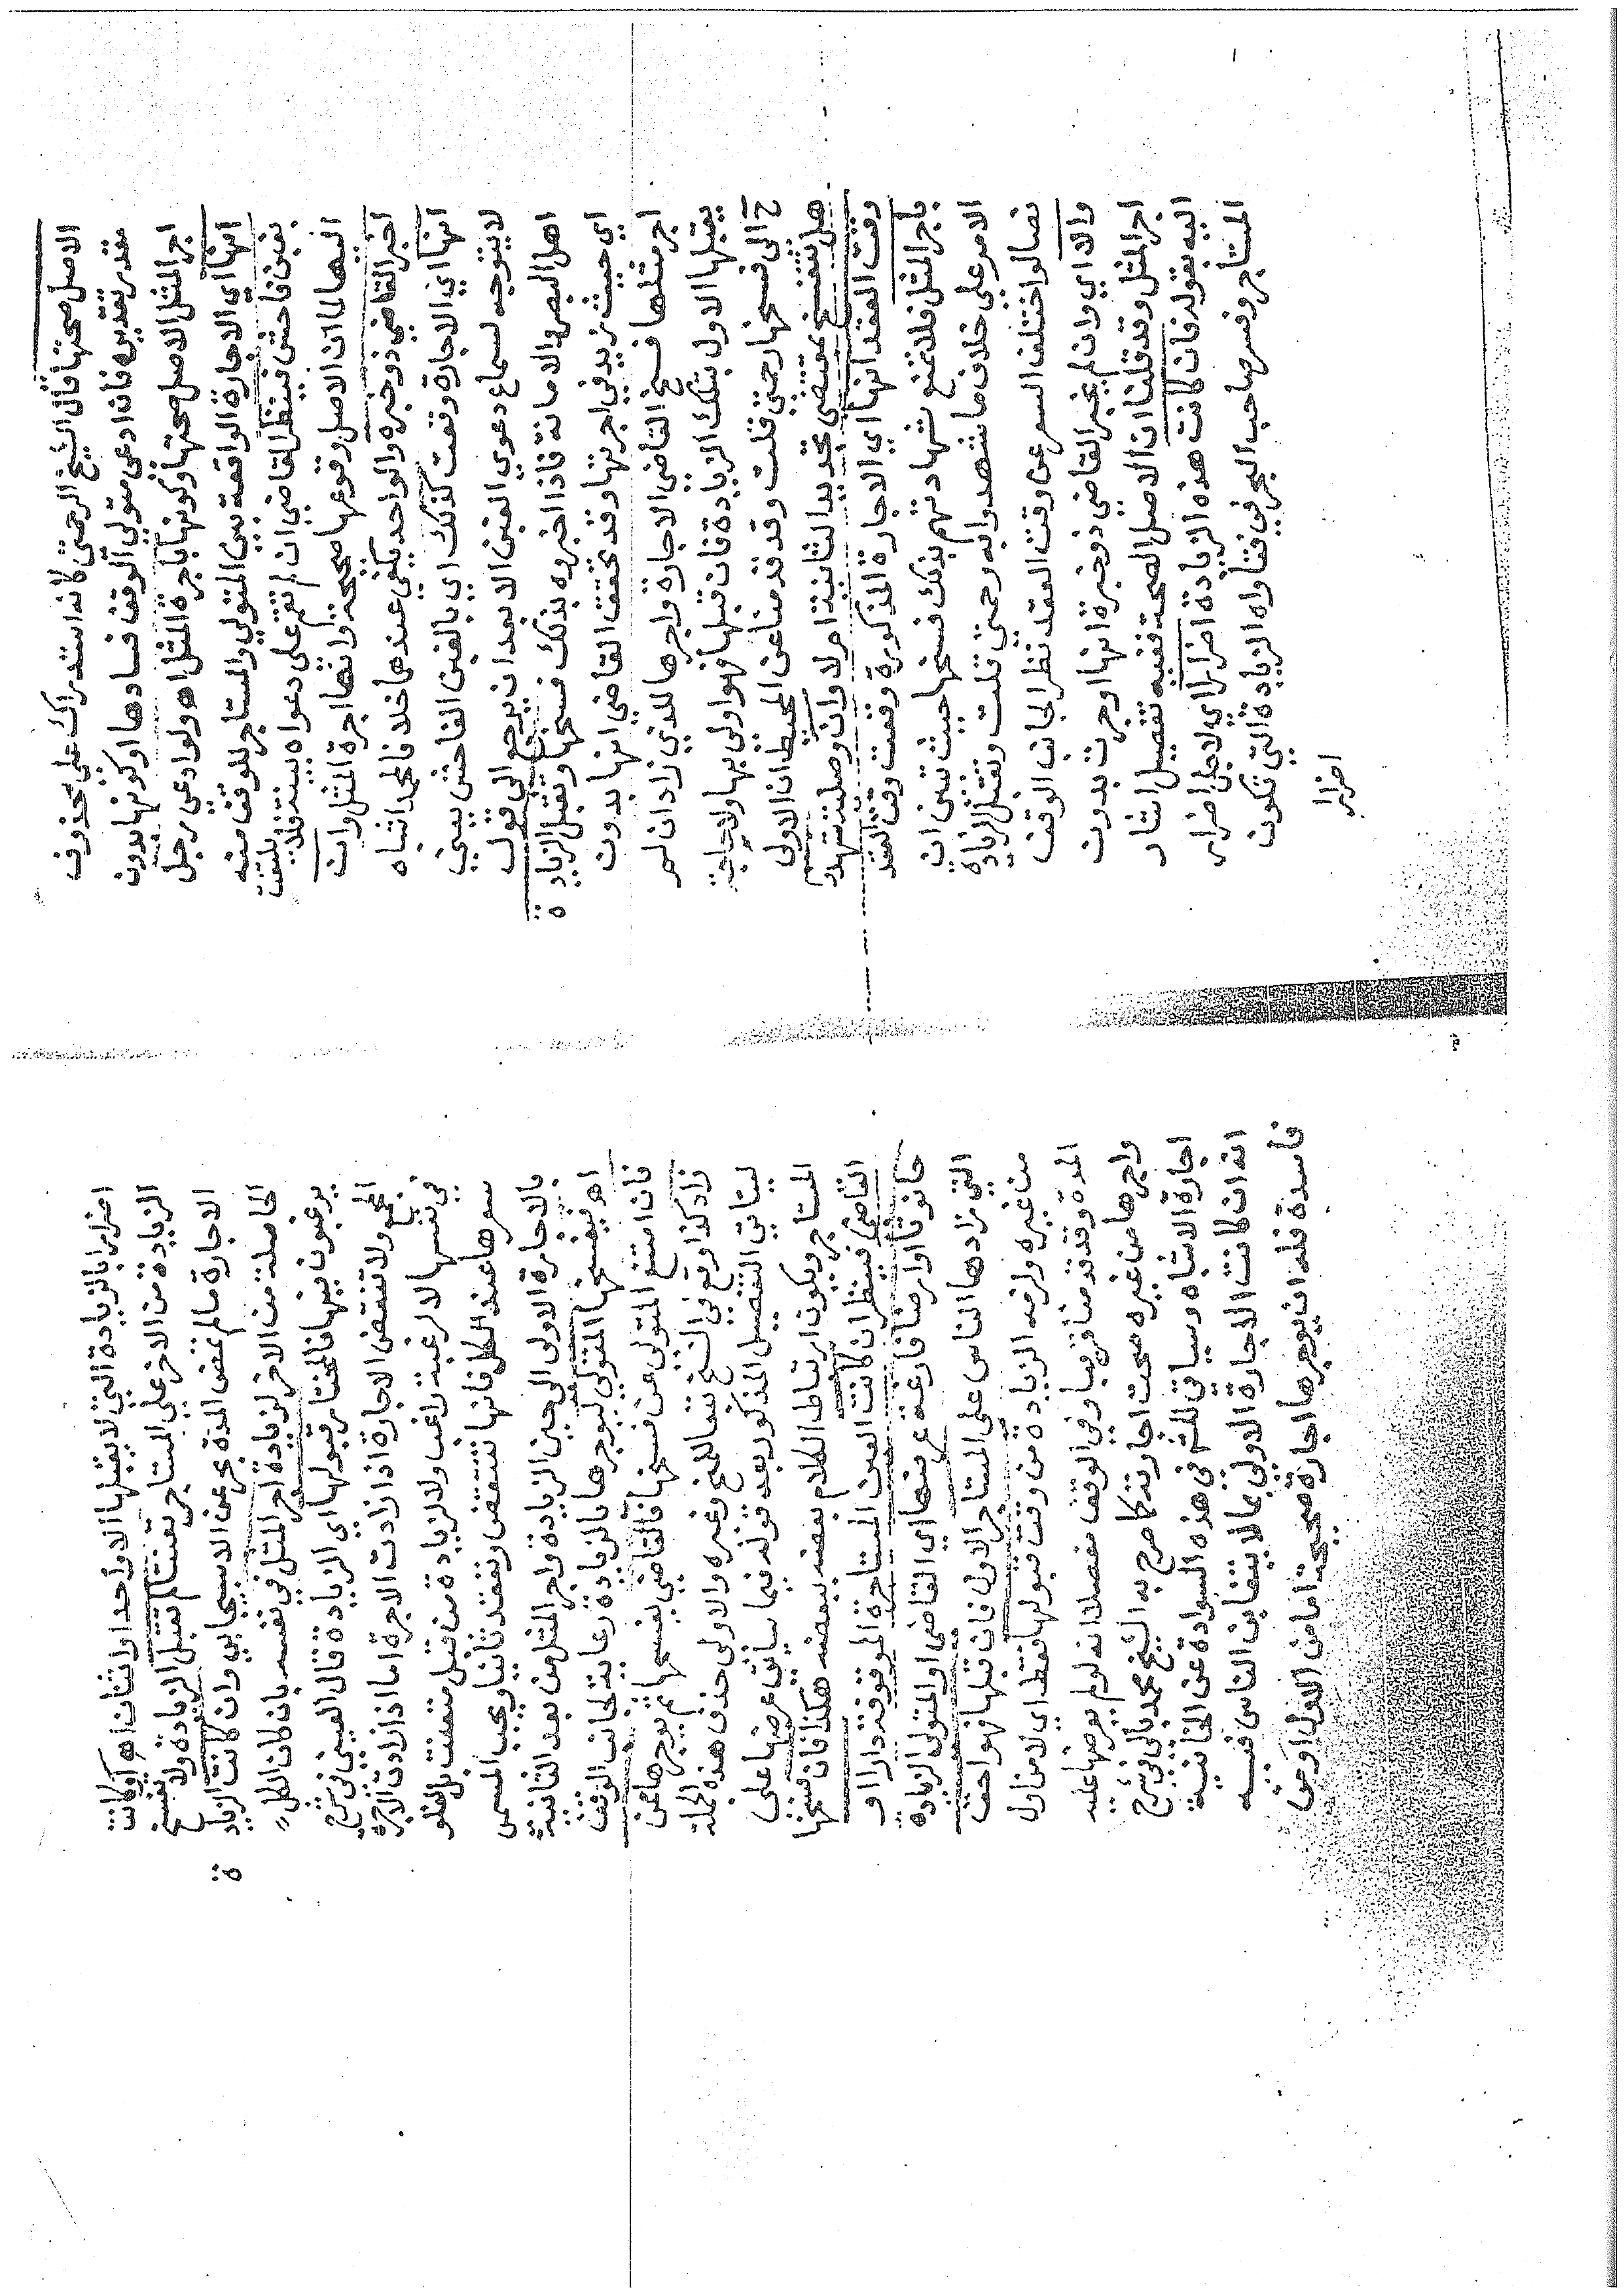 الاصل صحتها قال الشيخ الرحمتي كانه استدراك على محذوف
مقدر تقديره فان ادعى متولي الوقف فسادها او كونها بدون
اجر المثل الاصل صحتها وكونها باجرة المثل اهـ ولو ادعى رجل
انها اي الاجارة الواقعة بين المتولي والمستاجر للوقف منه
بغبن فاحش فينظر القاضي ان لم تقم على دعواه بينة فلا يلتفت
اليها لما ان الاصل وقوعها صحيحة وانها اجرة المثل وان
اخبر القاضي ذو خبره والواحد يكفي عندهما خلافا لمحمد اشباه
انها اي الاجارة وقعت كذلك اي بالغبن الفاحش يعني
لا يتوجه لسماع دعوى الغبن الا بعد ان يرجع الى قول
اهل البصر والامانة فاذا اخبروه بذلك فسخها وتقبل الزيادة
اي حيث زيد في اجرتها وقد تحقق القاضي انها بدون
اجر مثلها فسخ القاضي الاجارة واجرها للذي زاد ان لم
يقبلها الاول بتلك الزيادة فان قبلها فهو اولى بها ولا حاجة
ح الى فسخها رحمتي قلت وقد قدمنا عن المحيط ان الاولى
هل تنفسخ بمقتضى تجديد الثانية ام لا وان وصلية شهدوا
وقت العقد انها اي الاجارة المذكورة وقعت وقت العقد
باجر المثل فلا تمنع شهادتهم بذلك فسخها حيث تبين ان
الامر على خلاف ما شهدوا به رحمتي قلت وتقبل الزيادة
نصا لو اختلف السعر عن وقت العقد نظرا لجانب الوقف
والا اي وان لم يخبر القاضي ذو خبرة انها اوجرت بدون
اجر المثل وقد قلنا ان الاصل الصحة ففيه تفصيل اشار
اليه بقوله فان كانت هذه الزيادة اضرارا اي لاجل اضرار
المستاجر وفسر صاحب البحر في فتاواه الزيادة التي تكون
اضرارا
اضرارا بالزيادة التي لا يقبلها الا واحد او اثنان اهـ او كانت
الزيادة من الاخر على المستاجر تعنتا لم تقبل الزيادة ولا تفسخ
الاجارة ما لم تمض المدة بحر عن الاسبيجابي وان كانت الزيادة
الحاصلة من الاخر لزيادة اجر المثل في نفسه بان كان الكل
يرغبون فيها فالمختار قبولها اي الزيادة قال العيني في شرح
المجمع ولا تنقض الاجارة اذا زادت الاجرة اما اذا زادت الاجرة
في نفسها لا لرغبة راغب ولا لزيادة من قبل متعنت بل لغلو
سعرها عند الكل فانها تنتقض وتعقد ثانيا ويجب المسمى
بالاجارة الاولى الى حين الزيادة واجر المثل من بعد الثانية
اهـ فيفسخها المتولي ليوجرها بالزيادة رعاية لجانب الوقف
فان امتنع المتولي من فسخها فالقاضي يفسخها ثم يوجرها ممن
زاد كذا وقع في النسخ تبعا للمنح وغيره والاولى حذف هذه الجملة
لياتي التفصيل المذكور بعد قوله فيما سياتي عرضها على
المستاجر ويكون ارتباط الكلام بعضه ببعضه هكذا فان فسخها
القاضي فينظر ان كانت العين المستاجرة الموقوفة دارا او
حانوتا او ارضا فارغة عرضها اي القاضي او المتولي الزيادة
التي زادها الناس على المستاجر الاول فان قبلها فهو احق
من غيره ولزمه الزيادة من وقت قبولها فقط اي لا من اول
المدة وقد قدمنا قريبا وفي الوقف مفصلا انه لو لم يعرضها عليه
واجرها من غيره صحت اجارته كما صرح به الشيخ محمد بالي في شرح
اجارة الاشباه وسياتي للشـ في هذه السوادة عن الخانية
انه ان كانت الاجارة الاولى بما لا يتغابن الناس فيه
فاسدة فله ان يوجرها اجارة صحيحة اما من الاول او من